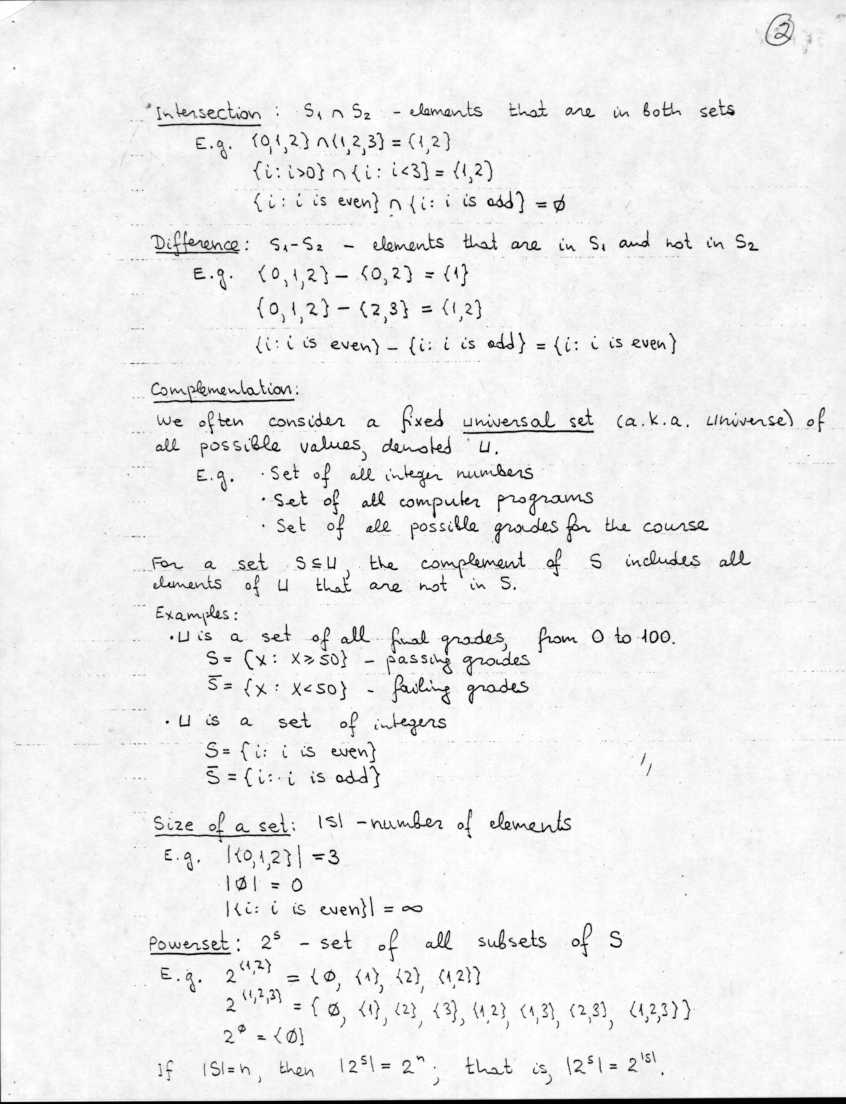 2
Intersection: S₁ ∩ S₂ - elements that are in both sets
E.g. {0,1,2} ∩ {1,2,3} = {1,2}
{i: i>0} ∩ {i: i<3} = {1,2}
{i: i is even} ∩ {i: i is odd} = ∅
Difference: S₁-S₂ - elements that are in S₁ and not in S₂
E.g. {0,1,2} - {0,2} = {1}
{0,1,2} - {2,3} = {1,2}
{i: i is even} - {i: i is odd} = {i: i is even}
Complementation:
We often consider a fixed universal set (a.k.a. universe) of
all possible values, denoted U.
E.g. · Set of all integer numbers
· Set of all computer programs
· Set of all possible grades for the course
For a set S⊆U, the complement of S includes all
elements of U that are not in S.
Examples:
· U is a set of all final grades, from 0 to 100.
S = {x: x≥50} - passing grades
S̅ = {x: x<50} - failing grades
· U is a set of integers
S = {i: i is even}
S̅ = {i: i is odd}
Size of a set: |S| - number of elements
E.g. |{0,1,2}| = 3
|∅| = 0
|{i: i is even}| = ∞
Powerset: 2ˢ - set of all subsets of S
E.g. 2^{1,2} = {∅, {1}, {2}, {1,2}}
2^{1,2,3} = {∅, {1}, {2}, {3}, {1,2}, {1,3}, {2,3}, {1,2,3}}
2^∅ = {∅}
If |S|=n, then |2ˢ| = 2ⁿ; that is, |2ˢ| = 2^|S|.